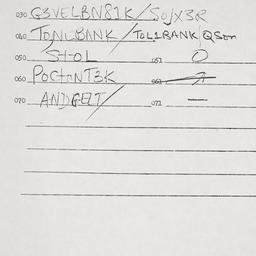 030 G3VELBN81K/SOJX3R
040 TONLBANK/TOL1BANK QSon
050 StOL 051 0
060 POCtONT3K 061
070 ANDGELT/ 071 —